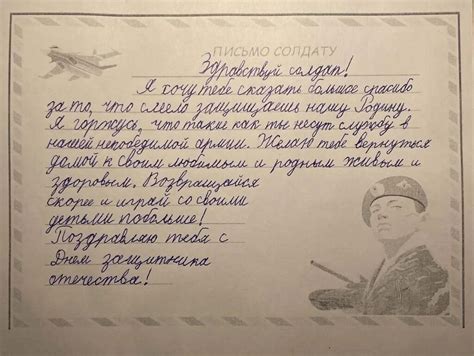 ПИСЬМО СОЛДАТУ
Здравствуй солдат!
Я хочу тебе сказать большое спасибо
за то, что смело защищаешь нашу Родину.
Я горжусь, что такие как ты несут службу в
нашей непобедимой армии. Желаю тебе вернуться
домой к своим любимым и родным живым и
здоровым. Возвращайся
скорее и играй со своими
детьми побольше!
Поздравляю тебя с
Днем защитника
отечества!